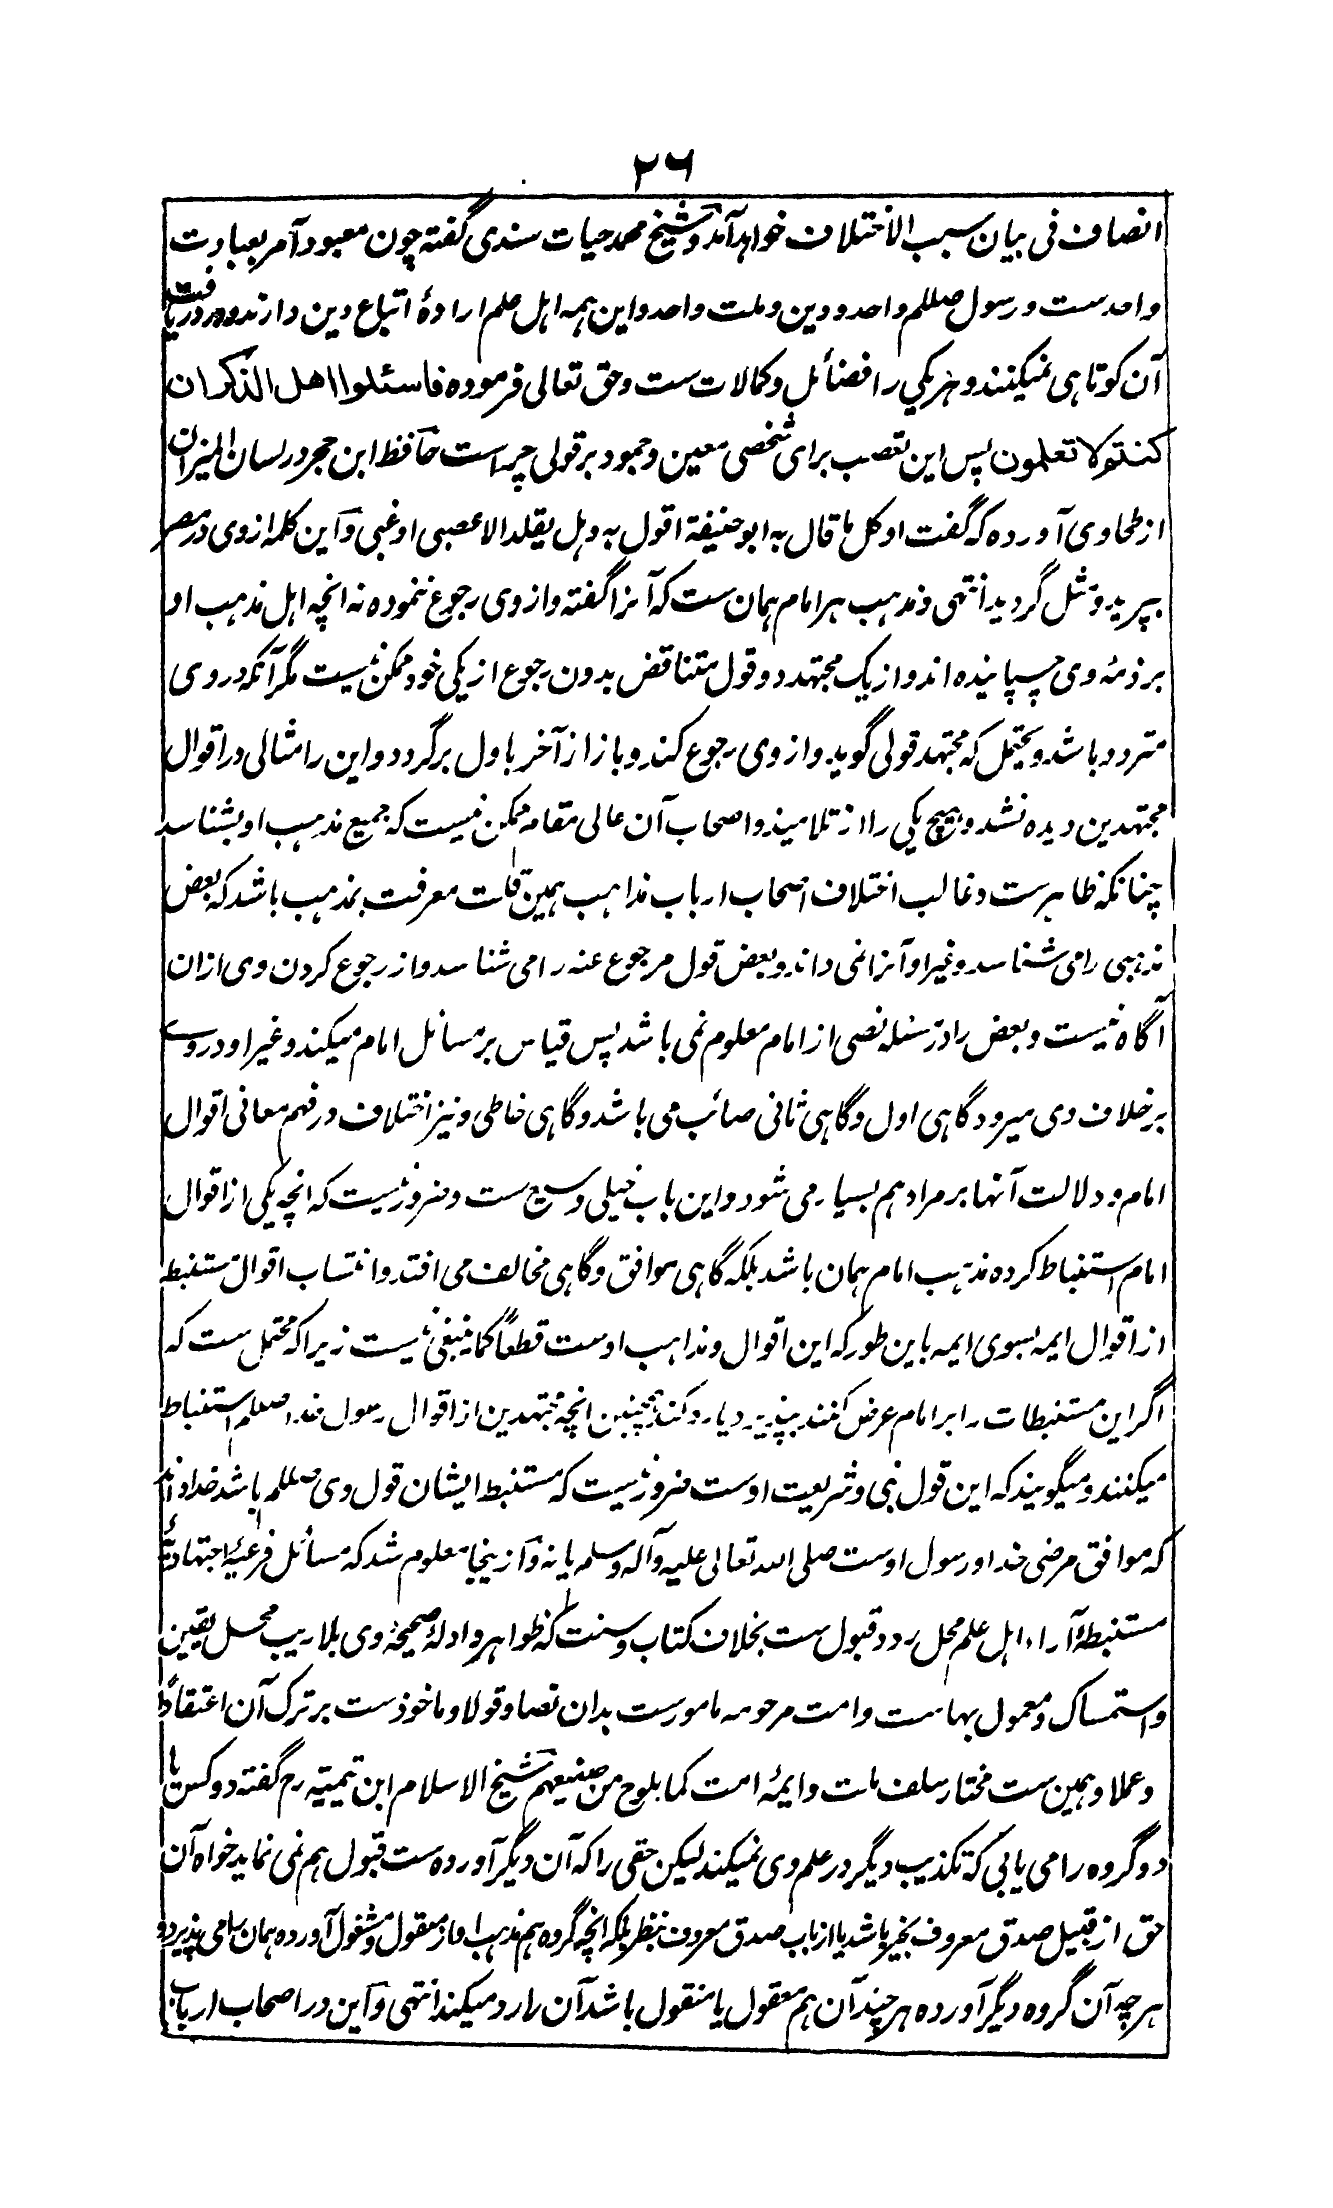 ۲۶
انصاف فی بیان سبب الاختلاف خواهد آمد و شیخ محمد حیات سندی گفته چون معبود آمر بعبادت
واحد ست و رسول صلعم واحد و دین و ملت واحد و این همه اهل علم ارادۀ اتباع دین دارند و در دریافت
آن کوتاهی نمیکنند و هر یکی را فضائل و کمالات ست و حق تعالی فرموده فاسئلوا اهل الذکر ان
کنتم لا تعلمون پس این تعصب برای شخصی معین و جمود بر قولی چراست حافظ ابن حجر در لسان المیزان
از طحاوی آورده که گفت او کل ما قال به ابو حنیفة اقول به و هل یقلد الا عصبی او غبی و این کلمه از وی در مصر
بپرید و مثل گردید انتهی و مذهب هر امام همان ست که آنرا گفته و از وی رجوع ننموده نه انچه اهل مذهب او
بر ذمۀ وی چسپانیده اند و از یک مجتهد دو قول متناقض بدون رجوع از یکی خود ممکن نیست مگر آنکه در وی
متردد باشد و یحتمل که مجتهد قولی گوید و از وی رجوع کند و باز از آخر باول برگردد و این را مثالی در اقوال
مجتهدین دیده نشد و هیچ یکی را از تلامیذ و اصحاب آن عالی مقام ممکن نیست که جمیع مذهب او بشناسد
چنانکه ظاهرست و غالب اختلاف اصحاب ارباب مذاهب همین قلت معرفت بمذهب باشد که بعض
مذهبی را می شناسد و غیر او آنرا نمی داند و بعض قول مرجوع عنه را می شناسد و از رجوع کردن وی ازان
آگاه نیست و بعض را در مسئله نصی از امام معلوم نمی باشد پس قیاس بر مسائل امام میکند و غیر او در وے
بر خلاف وی میرود گاهی اول و گاهی ثانی صائب می باشد و گاهی خاطی و نیز اختلاف در فهم معانی اقوال
امام و دلالت آنها بر مراد هم بسیار می شود و این باب خیلی وسیع ست و ضرور نیست که انچه یکی از اقوال
امام استنباط کرده مذهب امام همان باشد بلکه گاهی موافق و گاهی مخالف می افتد و انتساب اقوال مستنبط
از اقوال ایمه بسوی ایمه باین طور که این اقوال و مذاهب اوست قطعاً کما ینبغی نیست زیرا که محتمل ست که
اگر این مستنبطات را بر امام عرض کنند بپذیرد یا رد کند همچنین انچه مجتهدین از اقوال رسول خدا صلعم استنباط
میکنند و میگویند که این قول نبی و شریعت اوست ضرور نیست که مستنبط ایشان قول وی صلعم باشد خدا داند
که موافق مرضی خدا و رسول اوست صلی الله تعالی علیه و آله و سلم یا نه و ازینجا معلوم شد که مسائل فرعیۀ اجتهادیۀ
مستنبطۀ آراء اهل علم محل رد و قبول ست بخلاف کتاب و سنت که ظواهر و ادلۀ صحیحۀ وی بلا ریب محل یقین
و استمساک و معمول بهاست و امت مرحومه مامورست بدان نصا و قولا و ماخوذ ست بر ترک آن اعتقاداً
و عملا و همین ست مختار سلف امت و ایمۀ امت کما یلوح من صنیعهم شیخ الاسلام ابن تیمیه رح گفته دو کس یا
دو گروه را می یابی که تکذیب دیگر در علم وی نمیکند لیکن حقی را که آن دیگر آورده ست قبول هم نمی نماید خواه آن
حق از قبیل صدق معروف بخبر باشد یا از باب صدق معروف بنظر بلکه انچه گروه هم مذهب او از معقول و منقول آورده همان را می پذیرد و
هر چه آن گروه دیگر آورده هر چند آن هم معقول یا منقول باشد آن را رد میکند انتهی و این در اصحاب ارباب